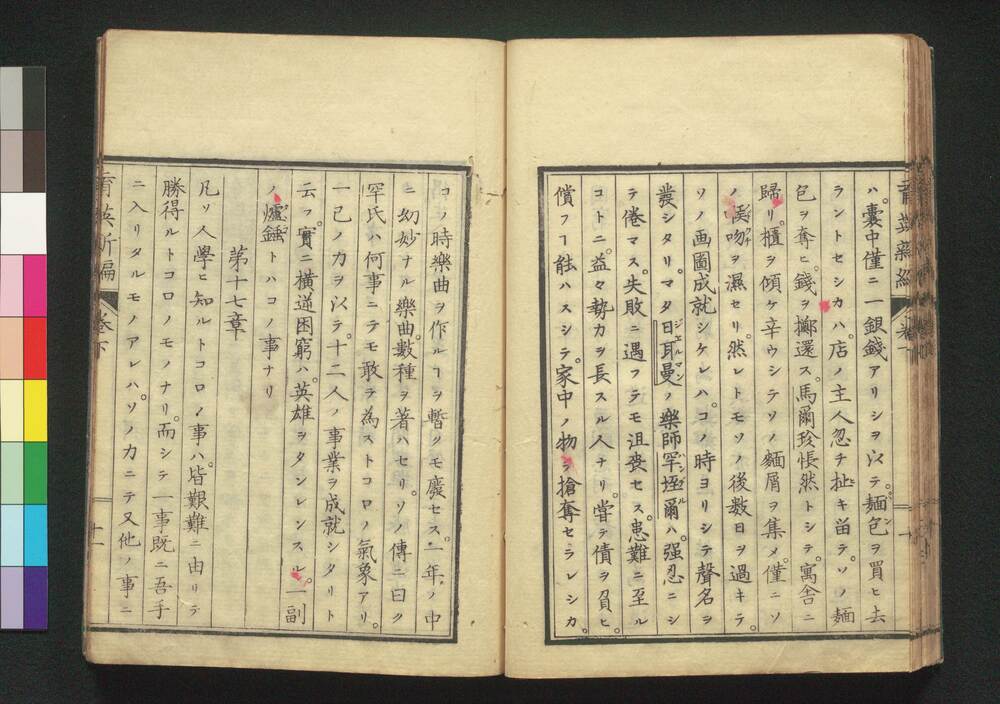 ハ。囊中僅ニ一銀錢アリシヲ以テ。麺包ヲ買ヒ去
ラントセシカハ。店ノ主人忽チ扯キ畄テ。ソノ麺
包ヲ奪ヒ。錢ヲ擲還ス。馬爾珍悵然トシテ。寓舎ニ
歸リ。櫃ヲ傾ケ辛ウシテソノ麺屑ヲ集メ。僅ニソ
ノ喉吻ヲ濕セリ。然レトモソノ後數日ヲ過キテ。
ソノ画圖成就シケレハ。コノ時ヨリシテ聲名ヲ
發シタリ。マタ日耳曼ノ樂師罕垤爾ハ。强忍ニシ
テ倦マス。失敗ニ遇フテモ沮喪セス。患難ニ至ル
コトニ。益々勢力ヲ長スル人ナリ。嘗テ債ヲ負ヒ。
償フヿ能ハスシテ。家中ノ物ヲ搶奪セラレシカ。
コノ時樂曲ヲ作ルヿヲ暫クモ廢セス。一年ノ中
ニ幼妙ナル樂曲。數種ヲ著ハセリ。ソノ傳ニ曰ク
罕氏ハ何事ニテモ敢テ為ストコロノ氣象アリ。
一己ノ力ヲ以テ。十二人ノ事業ヲ成就シタリト
云フ。實ニ横逆困窮ハ。英雄ヲタンレンスル。一副
ノ爐錘トハコノ事ナリ
第十七章
凡ソ人學ヒ知ルトコロノ事ハ。皆艱難ニ由リテ
勝得ルトコロノモノナリ。而シテ一事既ニ吾手
ニ入リタルモノアレハ。ソノ力ニテ又他ノ事ニ
育英新編
卷下
十一